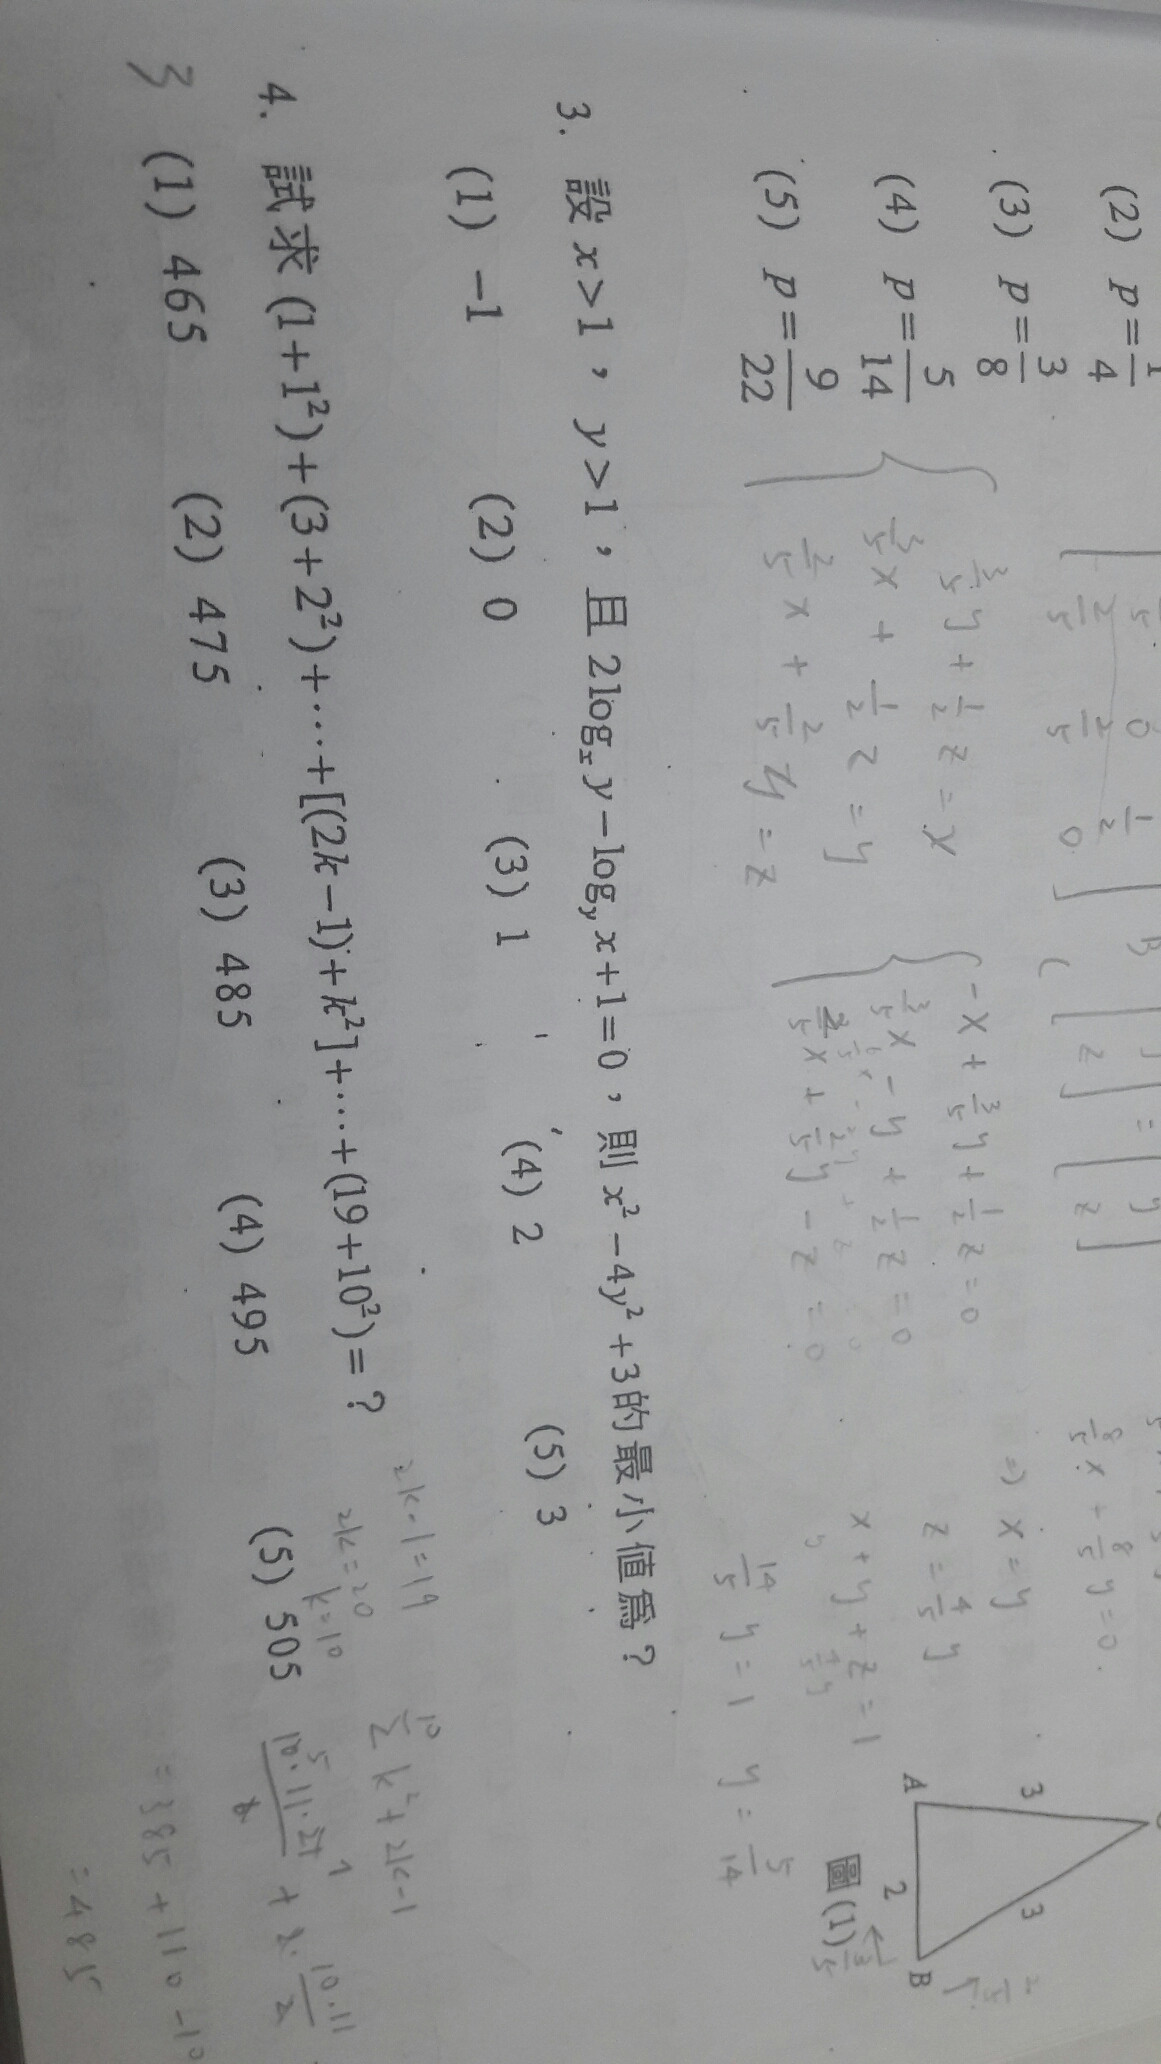 (2) P=1/4
(3) P=3/8
(4) P=5/14
(5) P=9/22
{ 3/5 y + 1/2 z = x
3/5 x + 1/2 z = y
2/5 x + 2/5 y = z
{ -x + 3/5 y + 1/2 z = 0
3/5 x - y + 1/2 z = 0
2/5 x + 2/5 y - z = 0
8/5 x + 8/5 y = 0
⇒ x = y
z = 4/5 y
x + y + z = 1
4/5 y
14/5 y = 1 y = 5/14
A
3
2
3
B
圖(1)
3. 設 x>1，y>1，且 2log_x y－log_y x＋1＝0，則 x²－4y²＋3的最小值為？
(1) －1 (2) 0 (3) 1 (4) 2 (5) 3
3 4. 試求 (1＋1²)＋(3＋2²)＋⋯＋[(2k－1)＋k²]＋⋯＋(19＋10²)＝？
(1) 465 (2) 475 (3) 485 (4) 495 (5) 505
2k-1=19
2k=20
k=10
10 Σ k²+2k-1
10·11·21/6 + 2·10·11/2
=385+110-10
=485